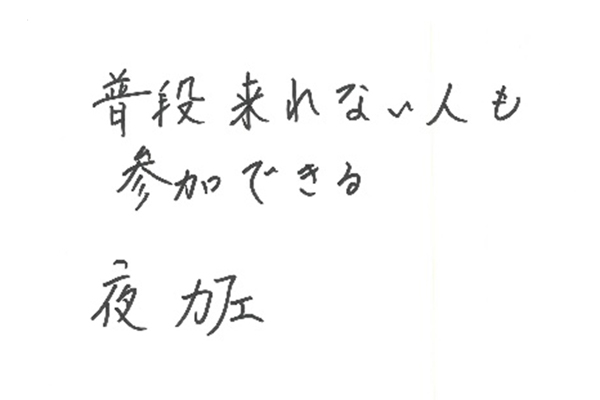 普段来れない人も
参加できる
夜カフェ